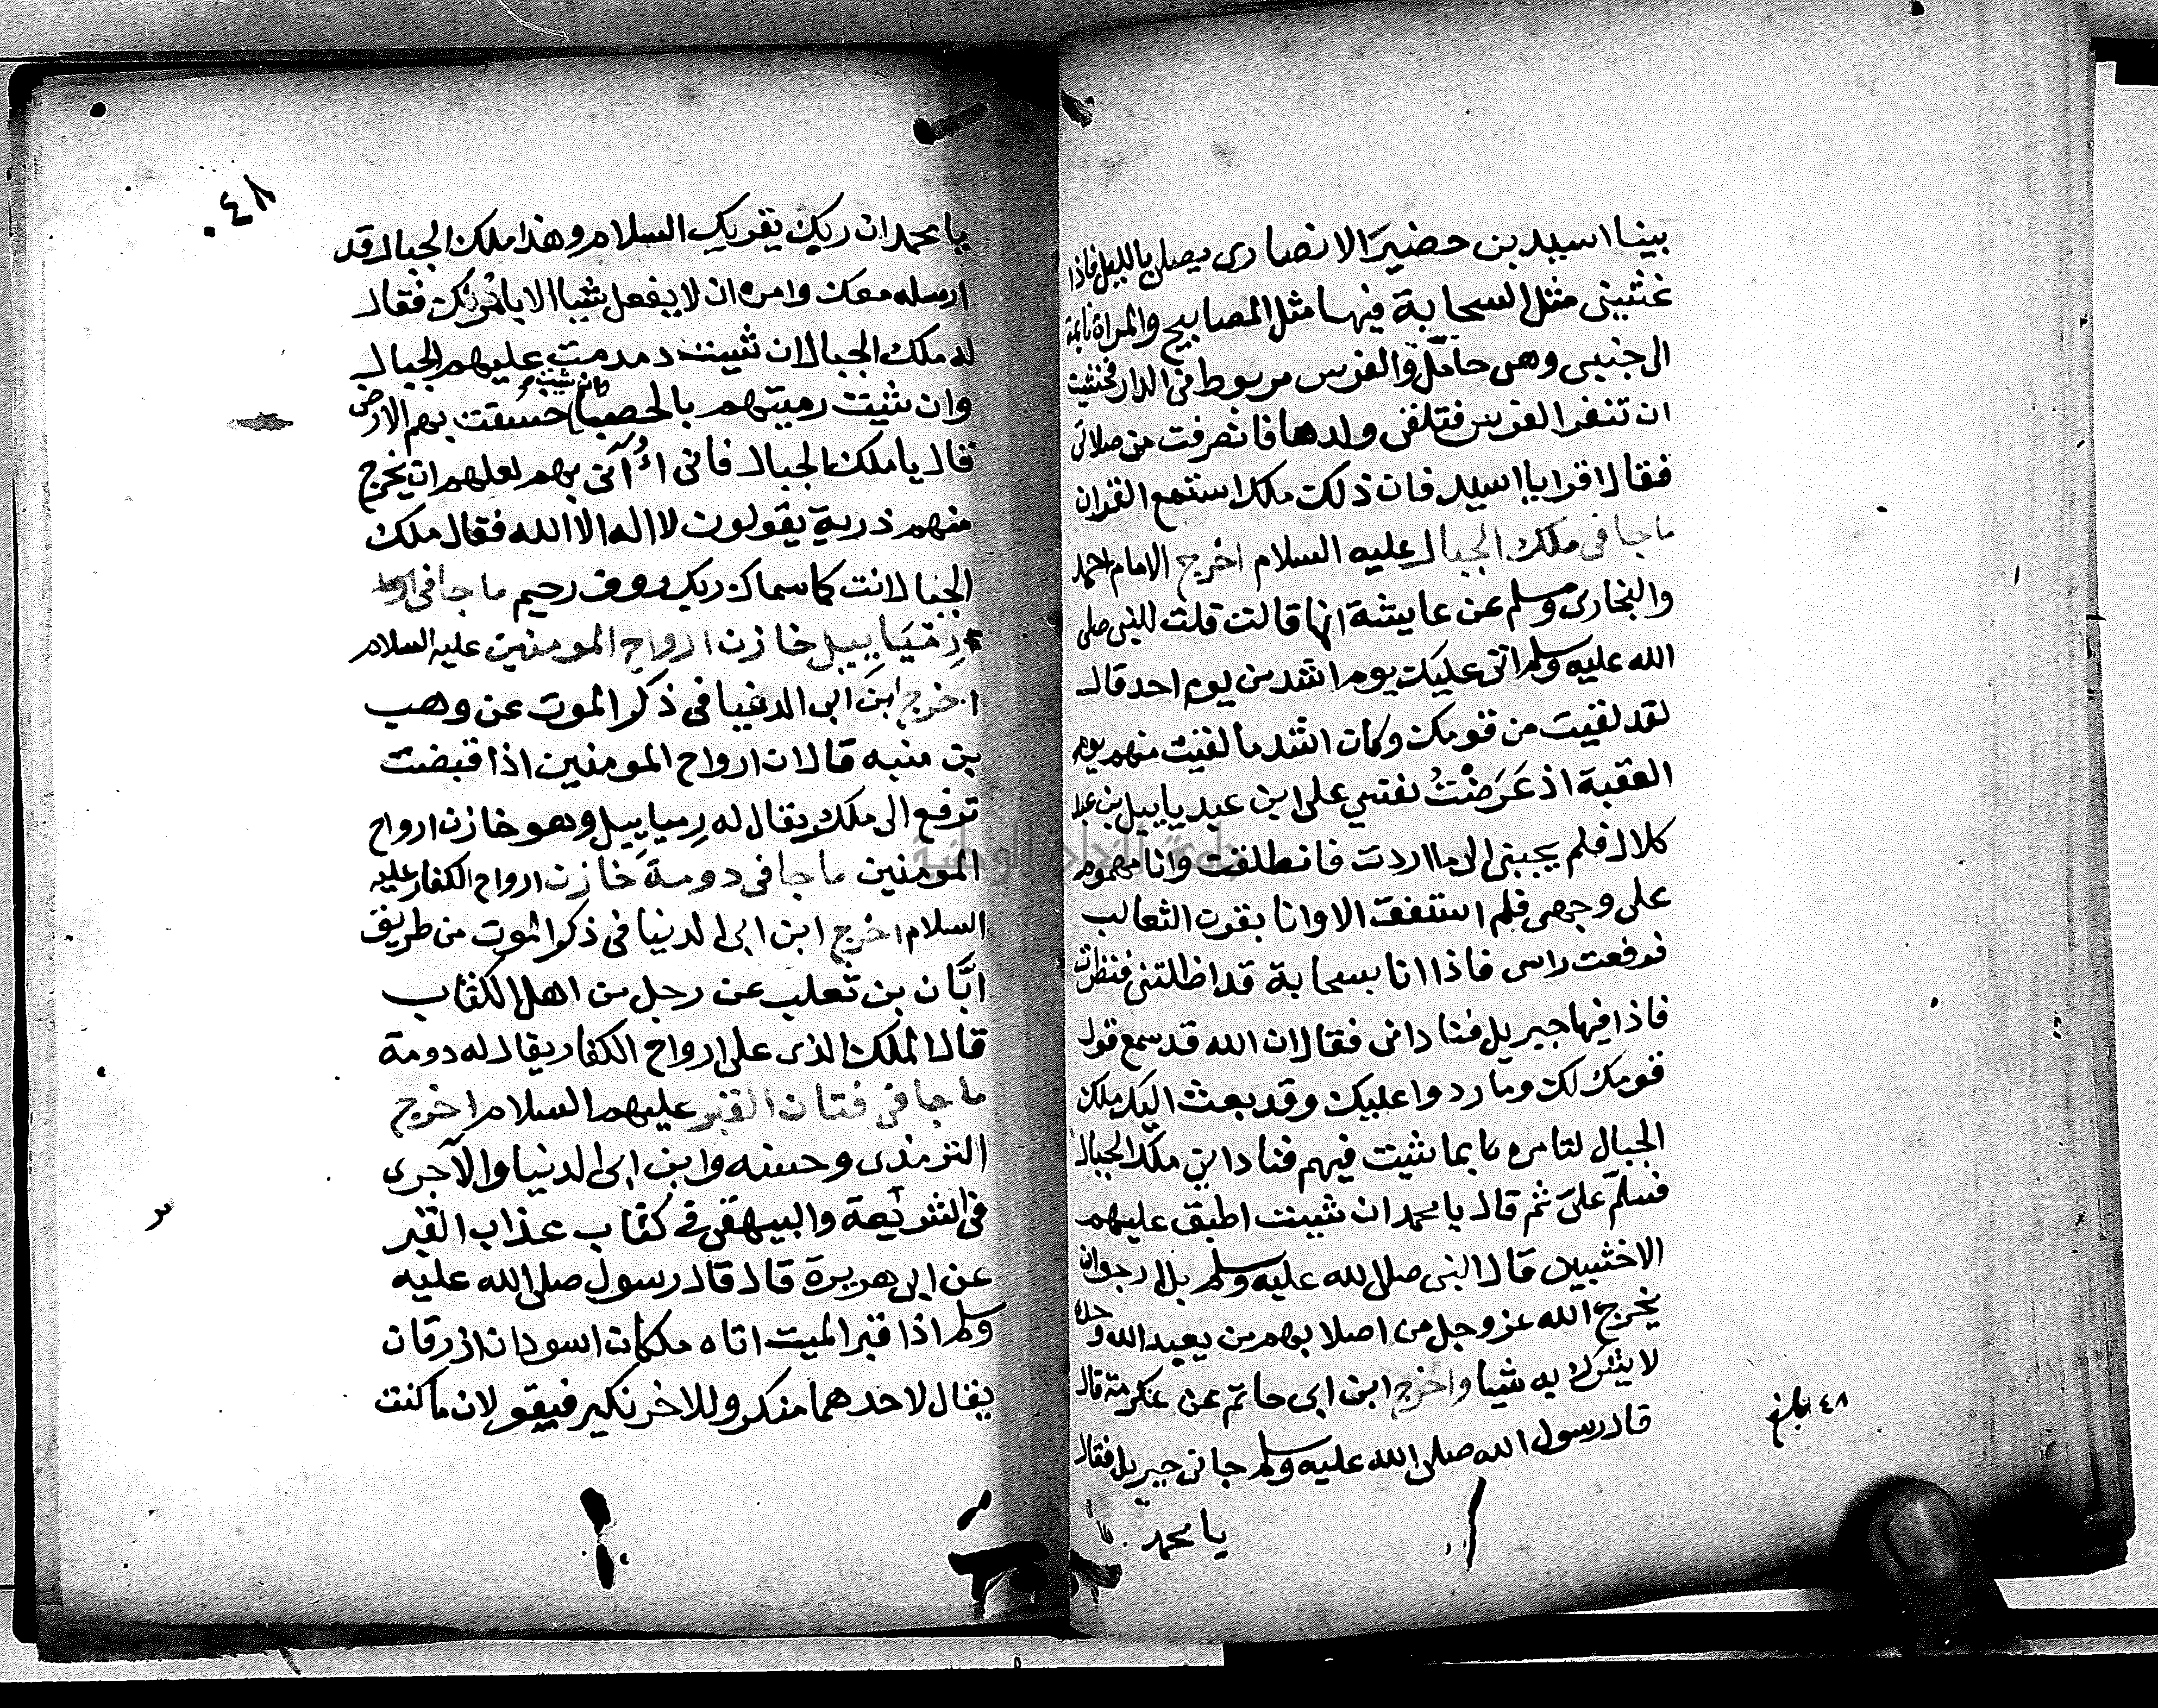 بينا اسيد بن حضير الانصارى يصلى بالليل فاذا
غشيني مثل السحابة فيها مثل المصابيح والمراة نايمة
الى جنبي وهي حامل والفرس مربوط في الدار فخشيت
ان تنفر الفرس فتلقى ولدها فانصرفت من صلاتي
فقال اقرا يا اسيد فان ذلك ملك استمع القران
ما جا فى ملك الجبال عليه السلام اخرج الامام احمد
والبخارى ومسلم عن عايشة انها قالت قلت للنبي صلى
الله عليه وسلم اتى عليك يوم اشد من يوم احد قال
لقد لقيت من قومك وكان اشد ما لقيت منهم يوم
العقبة اذ عَرَضْتُ نفسي على ابن عبد ياييل بن عبد
كلال فلم يجبني الى ما اردت فانطلقت وانا مهموم
على وجهى فلم استفق الا وانا بقرن الثعالب
فرفعت راسى فاذا انا بسحابة قد اظلتني فنظرت
فاذا فيها جبريل فنادانى فقال ان الله قد سمع قول
قومك لك وما ردوا عليك وقد بعث اليك ملك
الجبال لتامره بما شيت فيهم فنادانى ملك الجبال
فسلّم علىّ ثم قال يا محمد ان شيت اطبق عليهم
الاخشبين قال النبى صلى الله عليه وسلم بل ارجو ان
يخرج الله عز وجل من اصلابهم من يعبد الله وحده
لا يشرك به شيا واخرج ابن ابى حاتم عن عكرمة قال
قال رسول الله صلى الله عليه وسلم جانى جبريل فقال
يا محمد
٤٨
٠٤٨
يا محمد ان ربك يقريك السلام وهذا ملك الجبال قد
ارسله معك وامره ان لا يفعل شيا الا بامرك فقال
له ملك الجبال ان شيت دمدمت عليهم الجبال
وان شيت رميتهم بالحصبا وان شيت خسفت بهم الارض
قال يا ملك الجبال فانى آنى بهم لعلهم ان يخرج
منهم ذرية يقولون لا اله الا الله فقال ملك
الجبال انت كما سماك ربك روف رحيم ما جا فى
رِمْيَاييل خازن ارواح المومنين عليه السلام
اخرج ابن ابى الدنيا فى ذكر الموت عن وهب
بن منبه قال ان ارواح المومنين اذا قبضت
ترفع الى ملك يقال له رمياييل وهو خازن ارواح
المومنين ما جا فى دومة خازن ارواح الكفار عليه
السلام اخرج ابن ابى الدنيا فى ذكر الموت من طريق
ابَّان بن تعلب عن رجل من اهل الكتاب
قال الملك الذى على ارواح الكفار يقال له دومة
ما جا فى فتان القبر عليهم السلام اخرج
الترمذى وحسنه وابن ابى الدنيا والآجرى
فى الشريعة والبيهقى فى كتاب عذاب القبر
عن ابى هريرة قال قال رسول صلى الله عليه
وسلم اذا قبر الميت اتاه ملكان اسودان ازرقان
يقال لاحدهما منكر وللاخر نكير فيقولان ما كنت